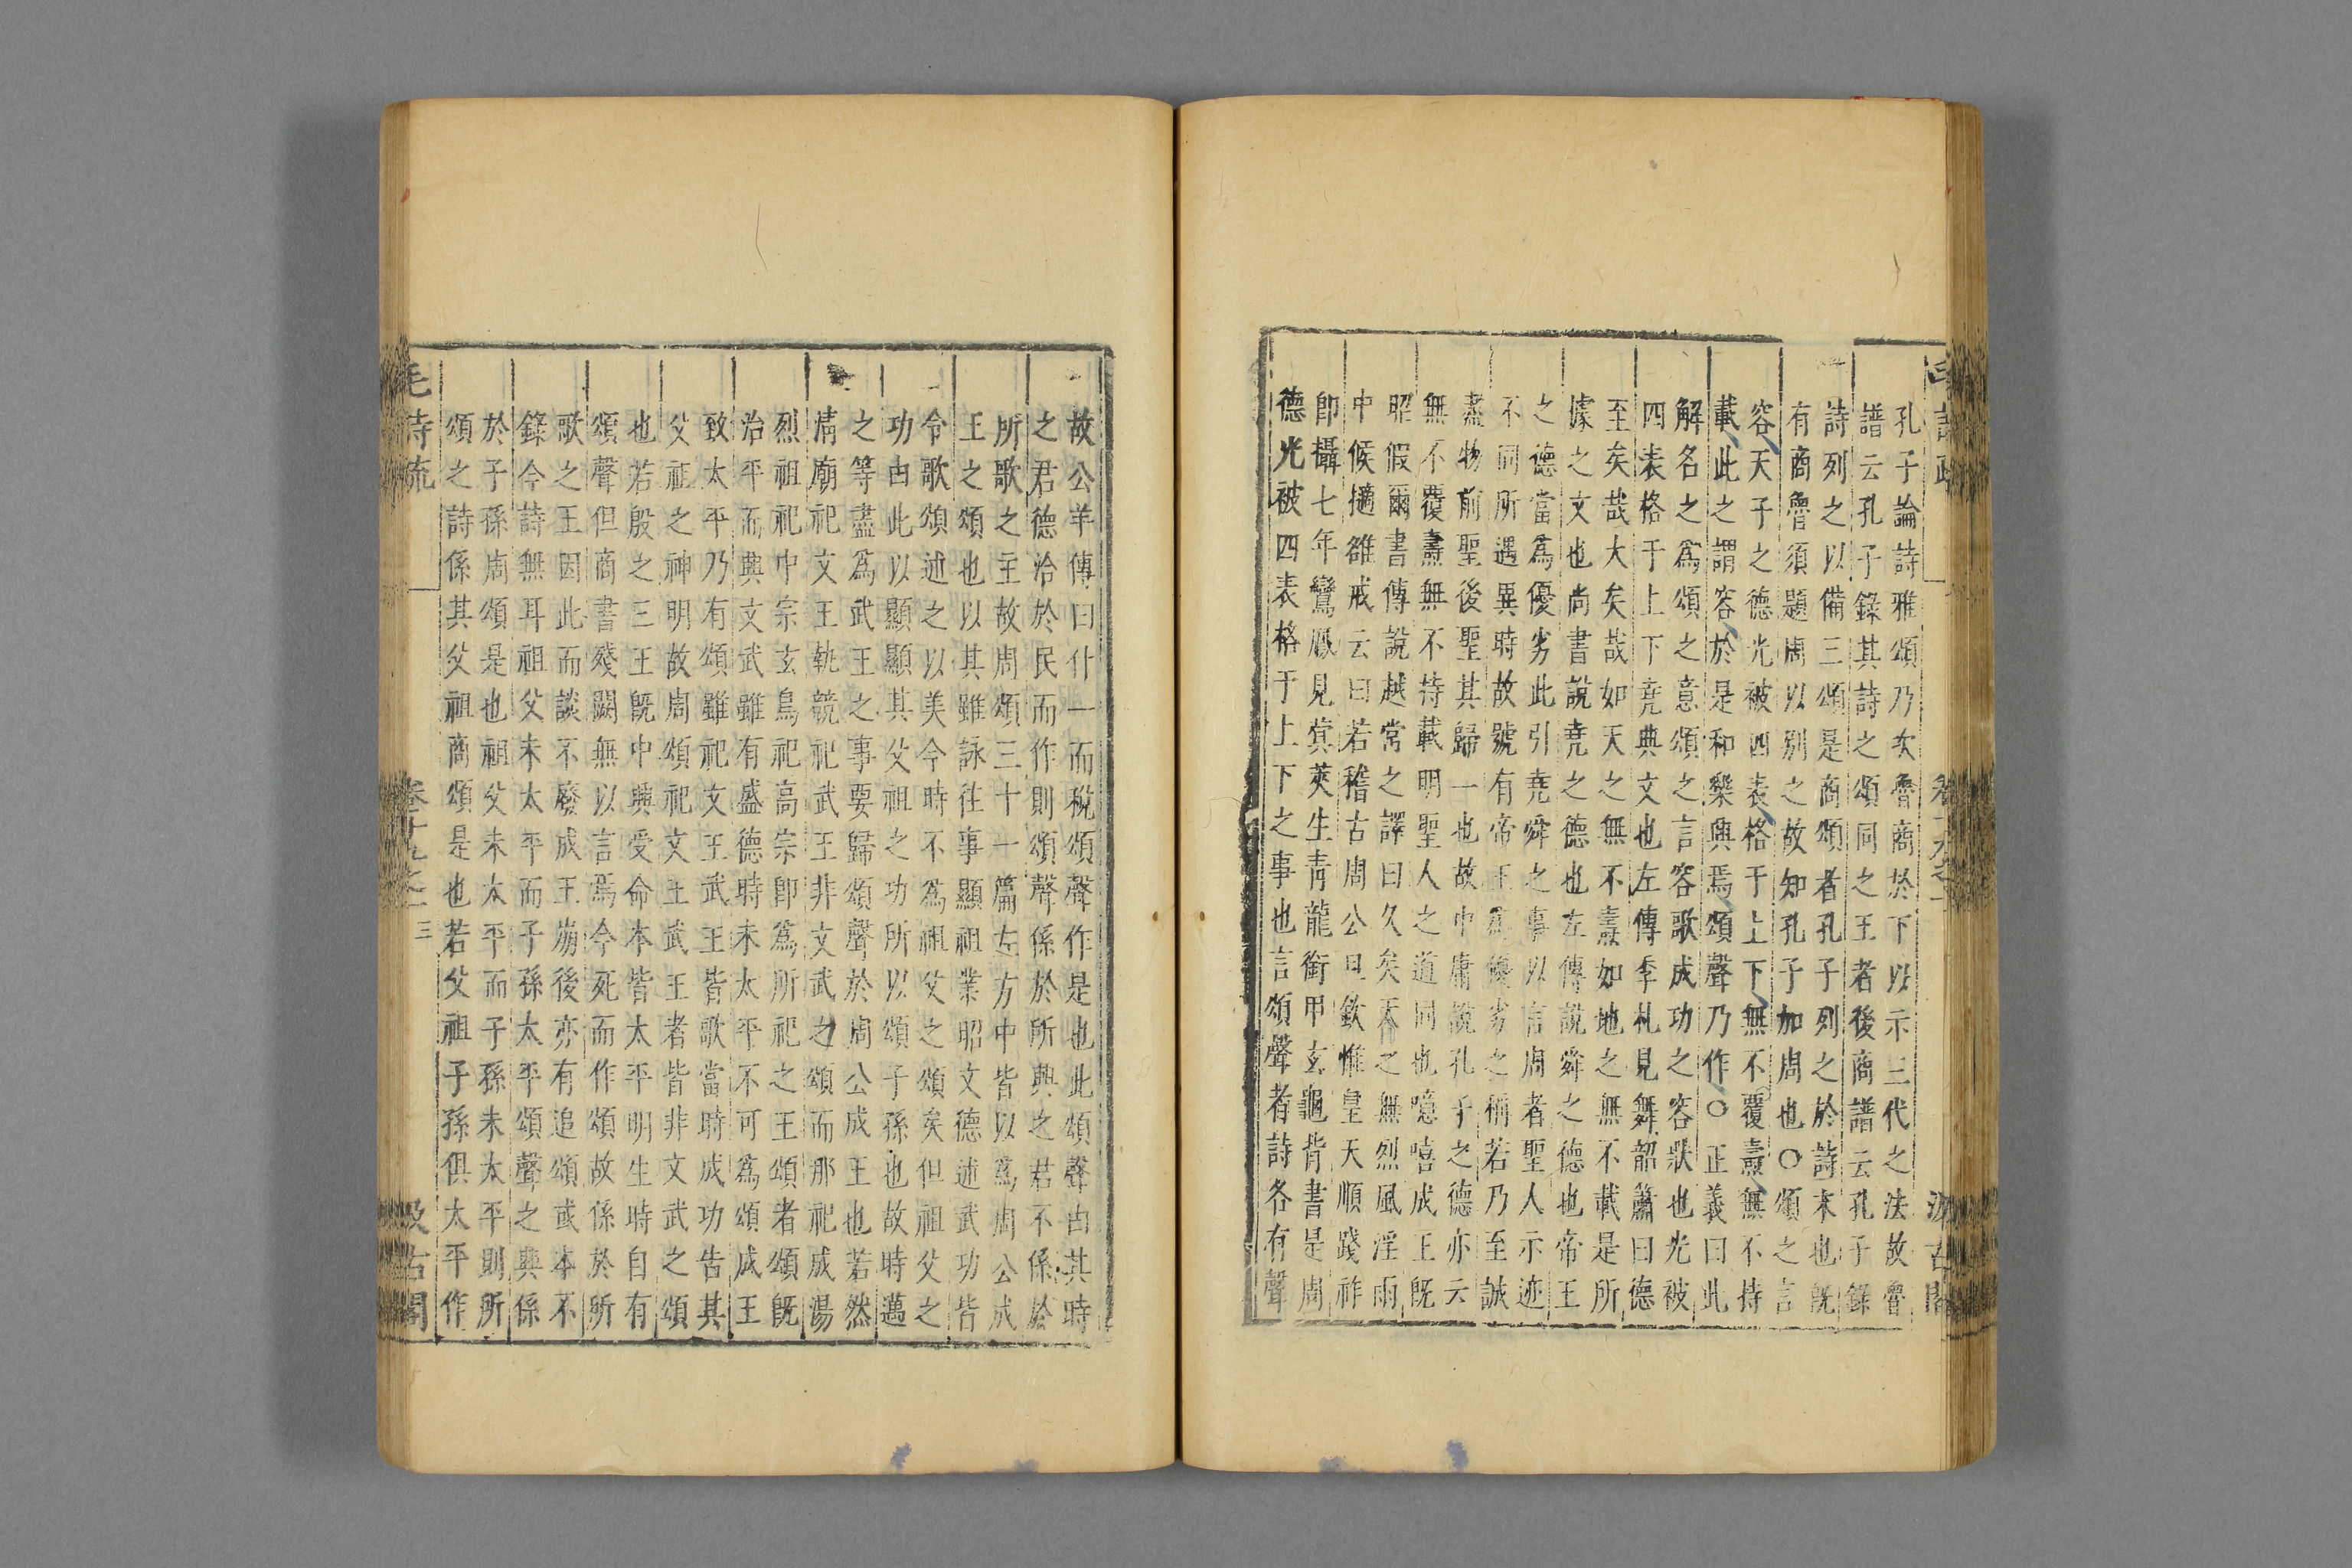 孔子論詩雅頌乃次魯商於下以示三代之法故魯
譜云孔子錄其詩之頌同之王者後商譜云孔子錄
詩列之以備三頌是商頌者孔子列之於詩末也既
有商魯須題周以別之故知孔子加周也○頌之言
容天子之德光被四表格于上下無不覆燾無不持
載此之謂容於是和樂興焉頌聲乃作○正義曰此
解名之爲頌之意頌之言容歌成功之容狀也光被
四表格于上下堯典文也左傳季札見舞韶簫曰德
至矣哉大矣哉如天之無不燾如地之無不載是所
據之文也尚書說堯之德也左傳說舜之德也帝王
之德當爲優劣此引堯舜之事以言周者聖人示迹
不同所遇異時故號有帝王爲優劣之稱若乃至誠
盡物前聖後聖其歸一也故中庸說孔子之德亦云
無不覆燾無不持載明聖人之道同也噫嘻成王既
昭假爾書傳說越常之譯曰久矣天之無烈風淫雨
中候擿雒戒云曰若稽古周公旦欽惟皇天順踐祚
卽攝七年鸞鳳見蓂莢生靑龍銜甲玄龜背書是周
德光被四表格于上下之事也言頌聲者詩各有聲
故公羊傳曰什一而稅頌聲作是也此頌聲由其時
之君德洽於民而作則頌聲係於所興之君不係於
所歌之主故周頌三十一篇左方中皆以爲周公成
王之頌也以其雖詠往事顯祖業昭文德述武功皆
令歌頌述之以美今時不爲祖父之頌矣但祖父之
功由此以顯顯其父祖之功所以頌子孫也故時邁
之等盡爲武王之事要歸頌聲於周公成王也若然
淸廟祀文王執競祀武王非文武之頌而那祀成湯
烈祖祀中宗玄鳥祀高宗卽爲所祀之王頌者頌既
治平而興文武雖有盛德時未太平不可爲頌成王
致太平乃有頌雖祀文王武王皆歌當時成功告其
父祖之神明故周頌祀文王武王者皆非文武之頌
也若殷之三王既中興受命本皆太平明生時自有
頌聲但商書殘闕無以言焉今死而作頌故係於所
歌之王因此而談不廢成王崩後亦有追頌或本不
錄今詩無耳祖父未太平而子孫太平頌聲之興係
於子孫周頌是也祖父未太平而子孫未太平則所
頌之詩係其父祖商頌是也若父祖子孫俱太平作
毛詩疏 卷十九之一 三 汲古閣